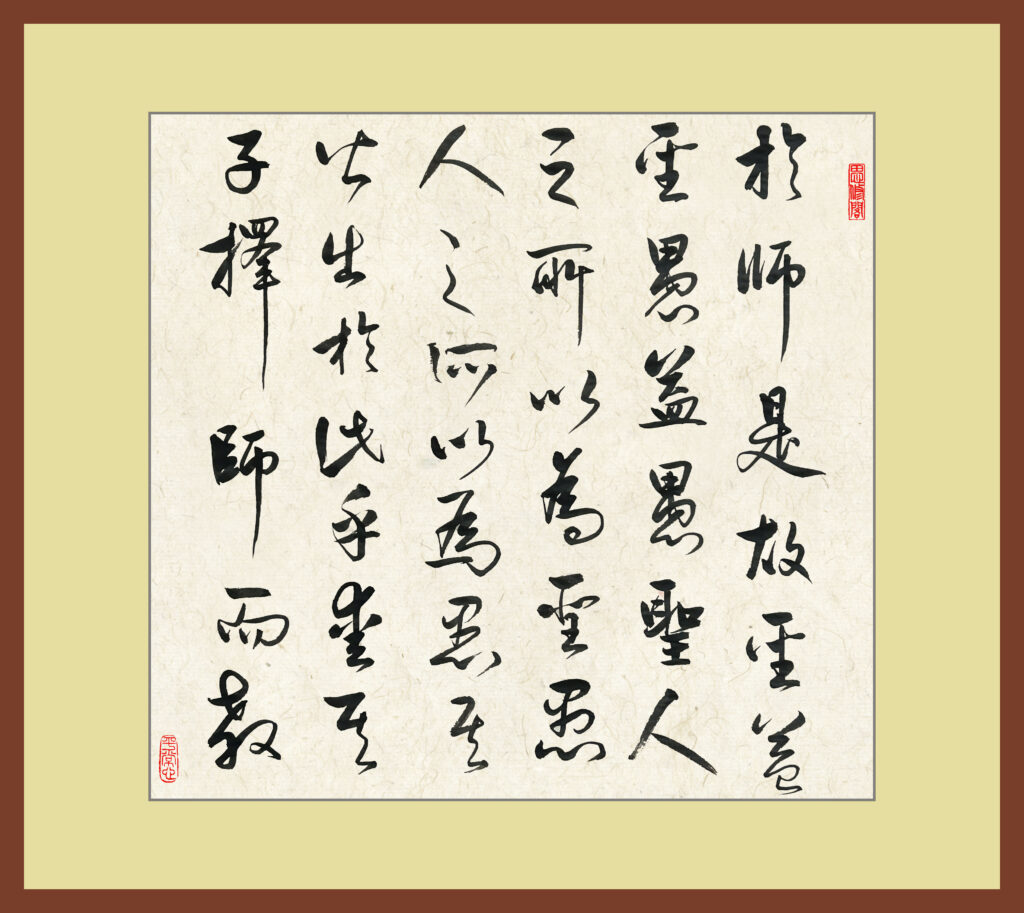 思修閣
於師是故聖益
聖愚益愚聖人
之所以為聖愚
人之所以為愚其
皆出於此乎愛其
子擇師而教
平常心